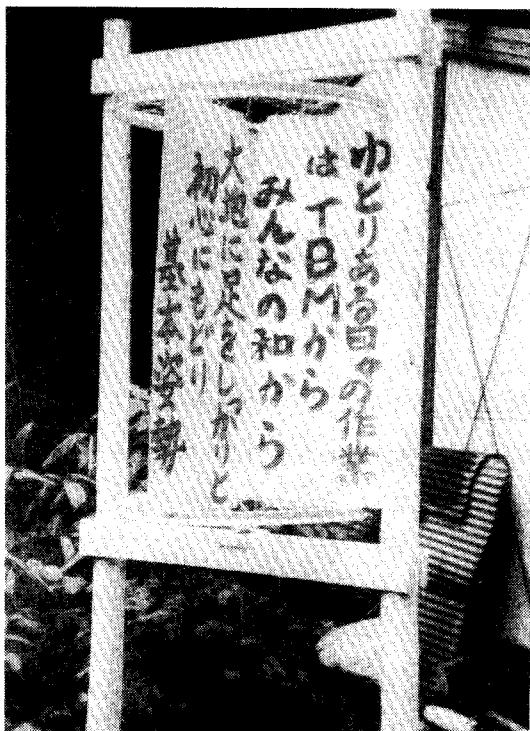 ゆとりある日々の作業
はTBMから
みんなの和から
大地に足をしっかりと
初心にもどり
基本